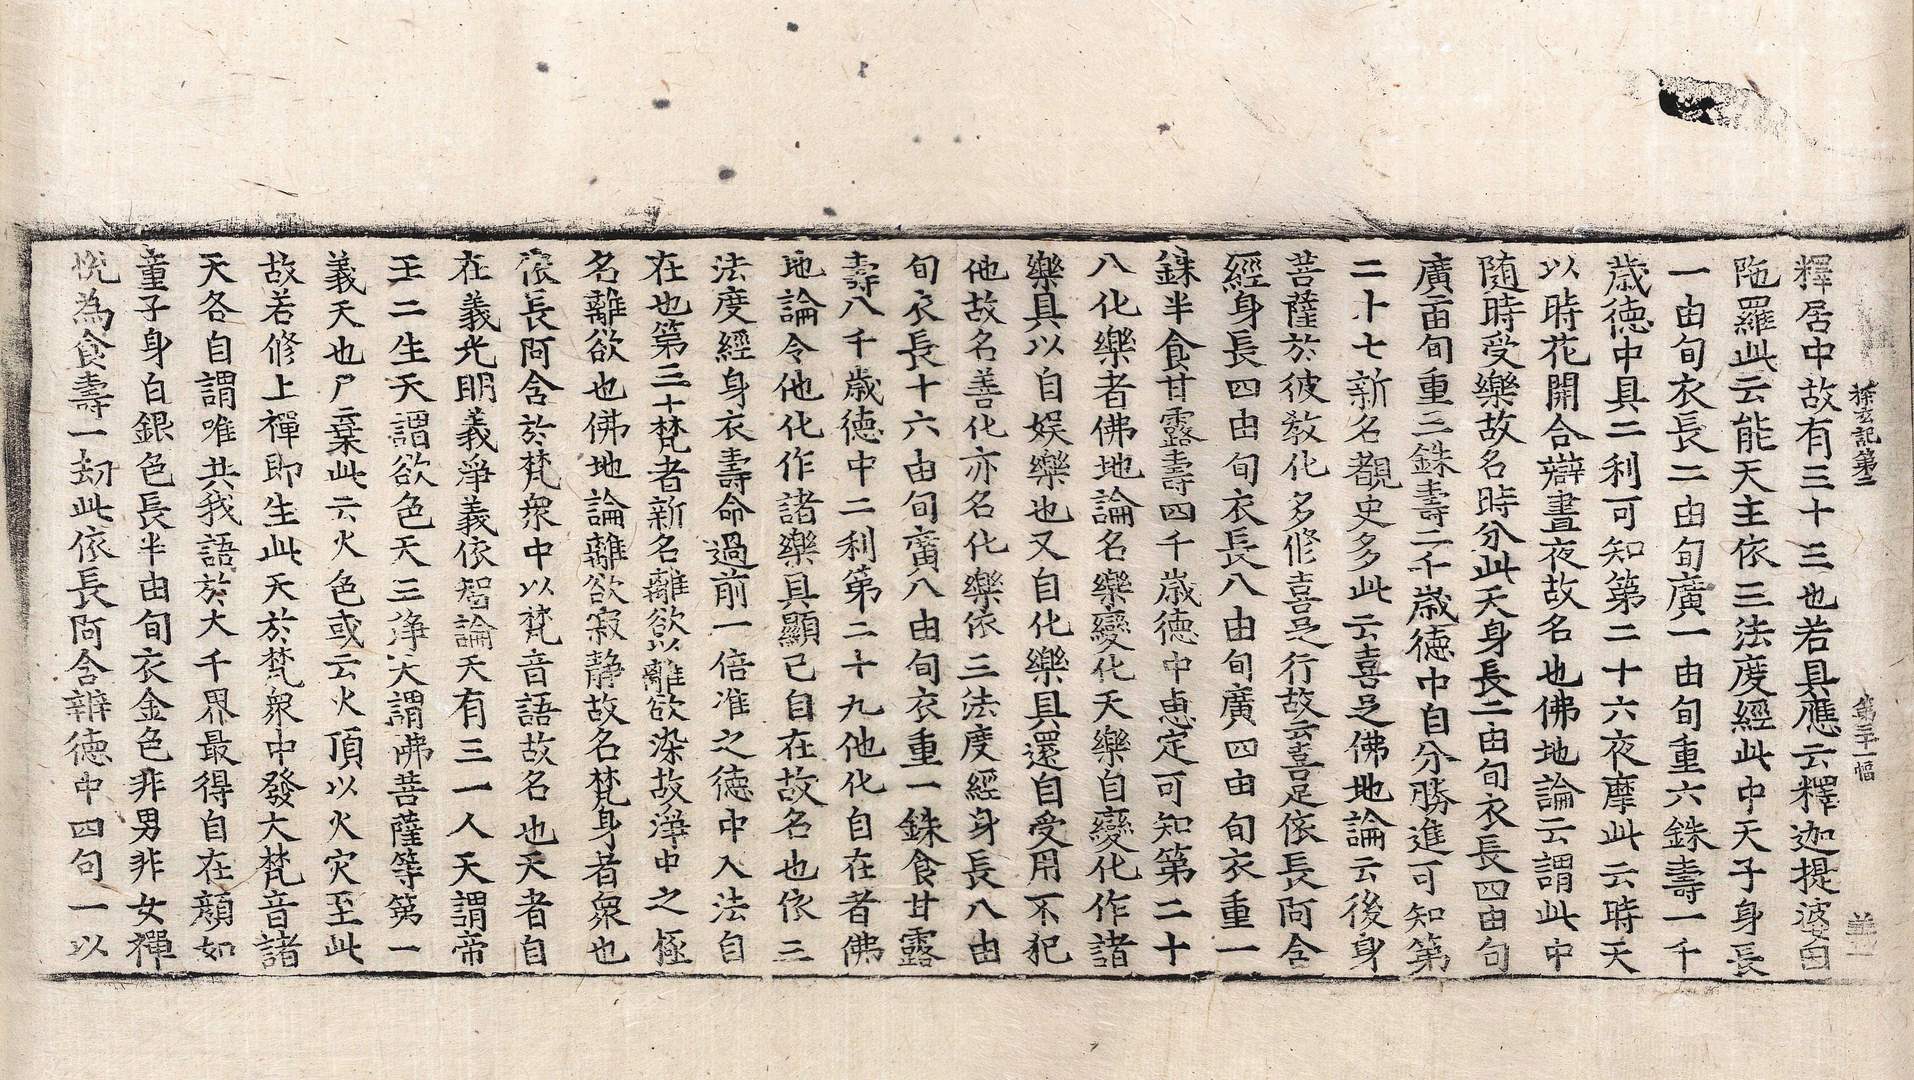 探玄記第二 第三十一幅
釋居中故有三十三也若具應云釋迦提婆因
陁羅此云能天主依三法度經此中天子身長
一由旬衣長二由旬廣一由旬重六銖壽一千
歲德中具二利可知第二十六夜摩此云時天
以時花開合辯晝夜故名也佛地論云謂此中
隨時受樂故名時分此天身長二由旬衣長四由旬
廣二由旬重三銖壽二千歲德中自分勝進可知第
二十七新名覩史多此云喜足佛地論云後身
菩薩於彼教化多修喜足行故云喜足依長阿含
經身長四由旬衣長八由旬廣四由旬衣重一
銖半食甘露壽四千歲德中惠定可知第二十
八化樂者佛地論名樂變化天樂自變化作諸
樂具以自娛樂也又自化樂具還自受用不犯
他故名善化亦名化樂依三法度經身長八由
旬衣長十六由旬廣八由旬衣重一銖食甘露
壽八千歲德中二利第二十九他化自在者佛
地論令他化作諸樂具顯己自在故名也依三
法度經身衣壽命過前一倍准之德中入法自
在也第三十梵者新名離欲以離欲染故淨中之極
名離欲也佛地論離欲寂靜故名梵身者衆也
依長阿含於梵衆中以梵音語故名也天者自
在義光明義淨義依智論天有三一人天謂帝
王二生天謂欲色天三淨天謂佛菩薩等第一
義天也尸棄此云火色或云火頂以火灾至此
故若修上禪即生此天於梵衆中發大梵音諸
天各自謂唯共我語於大千界最得自在顏如
童子身白銀色長半由旬衣金色非男非女禪
悅為食壽一劫此依長阿含辯德中四句一以